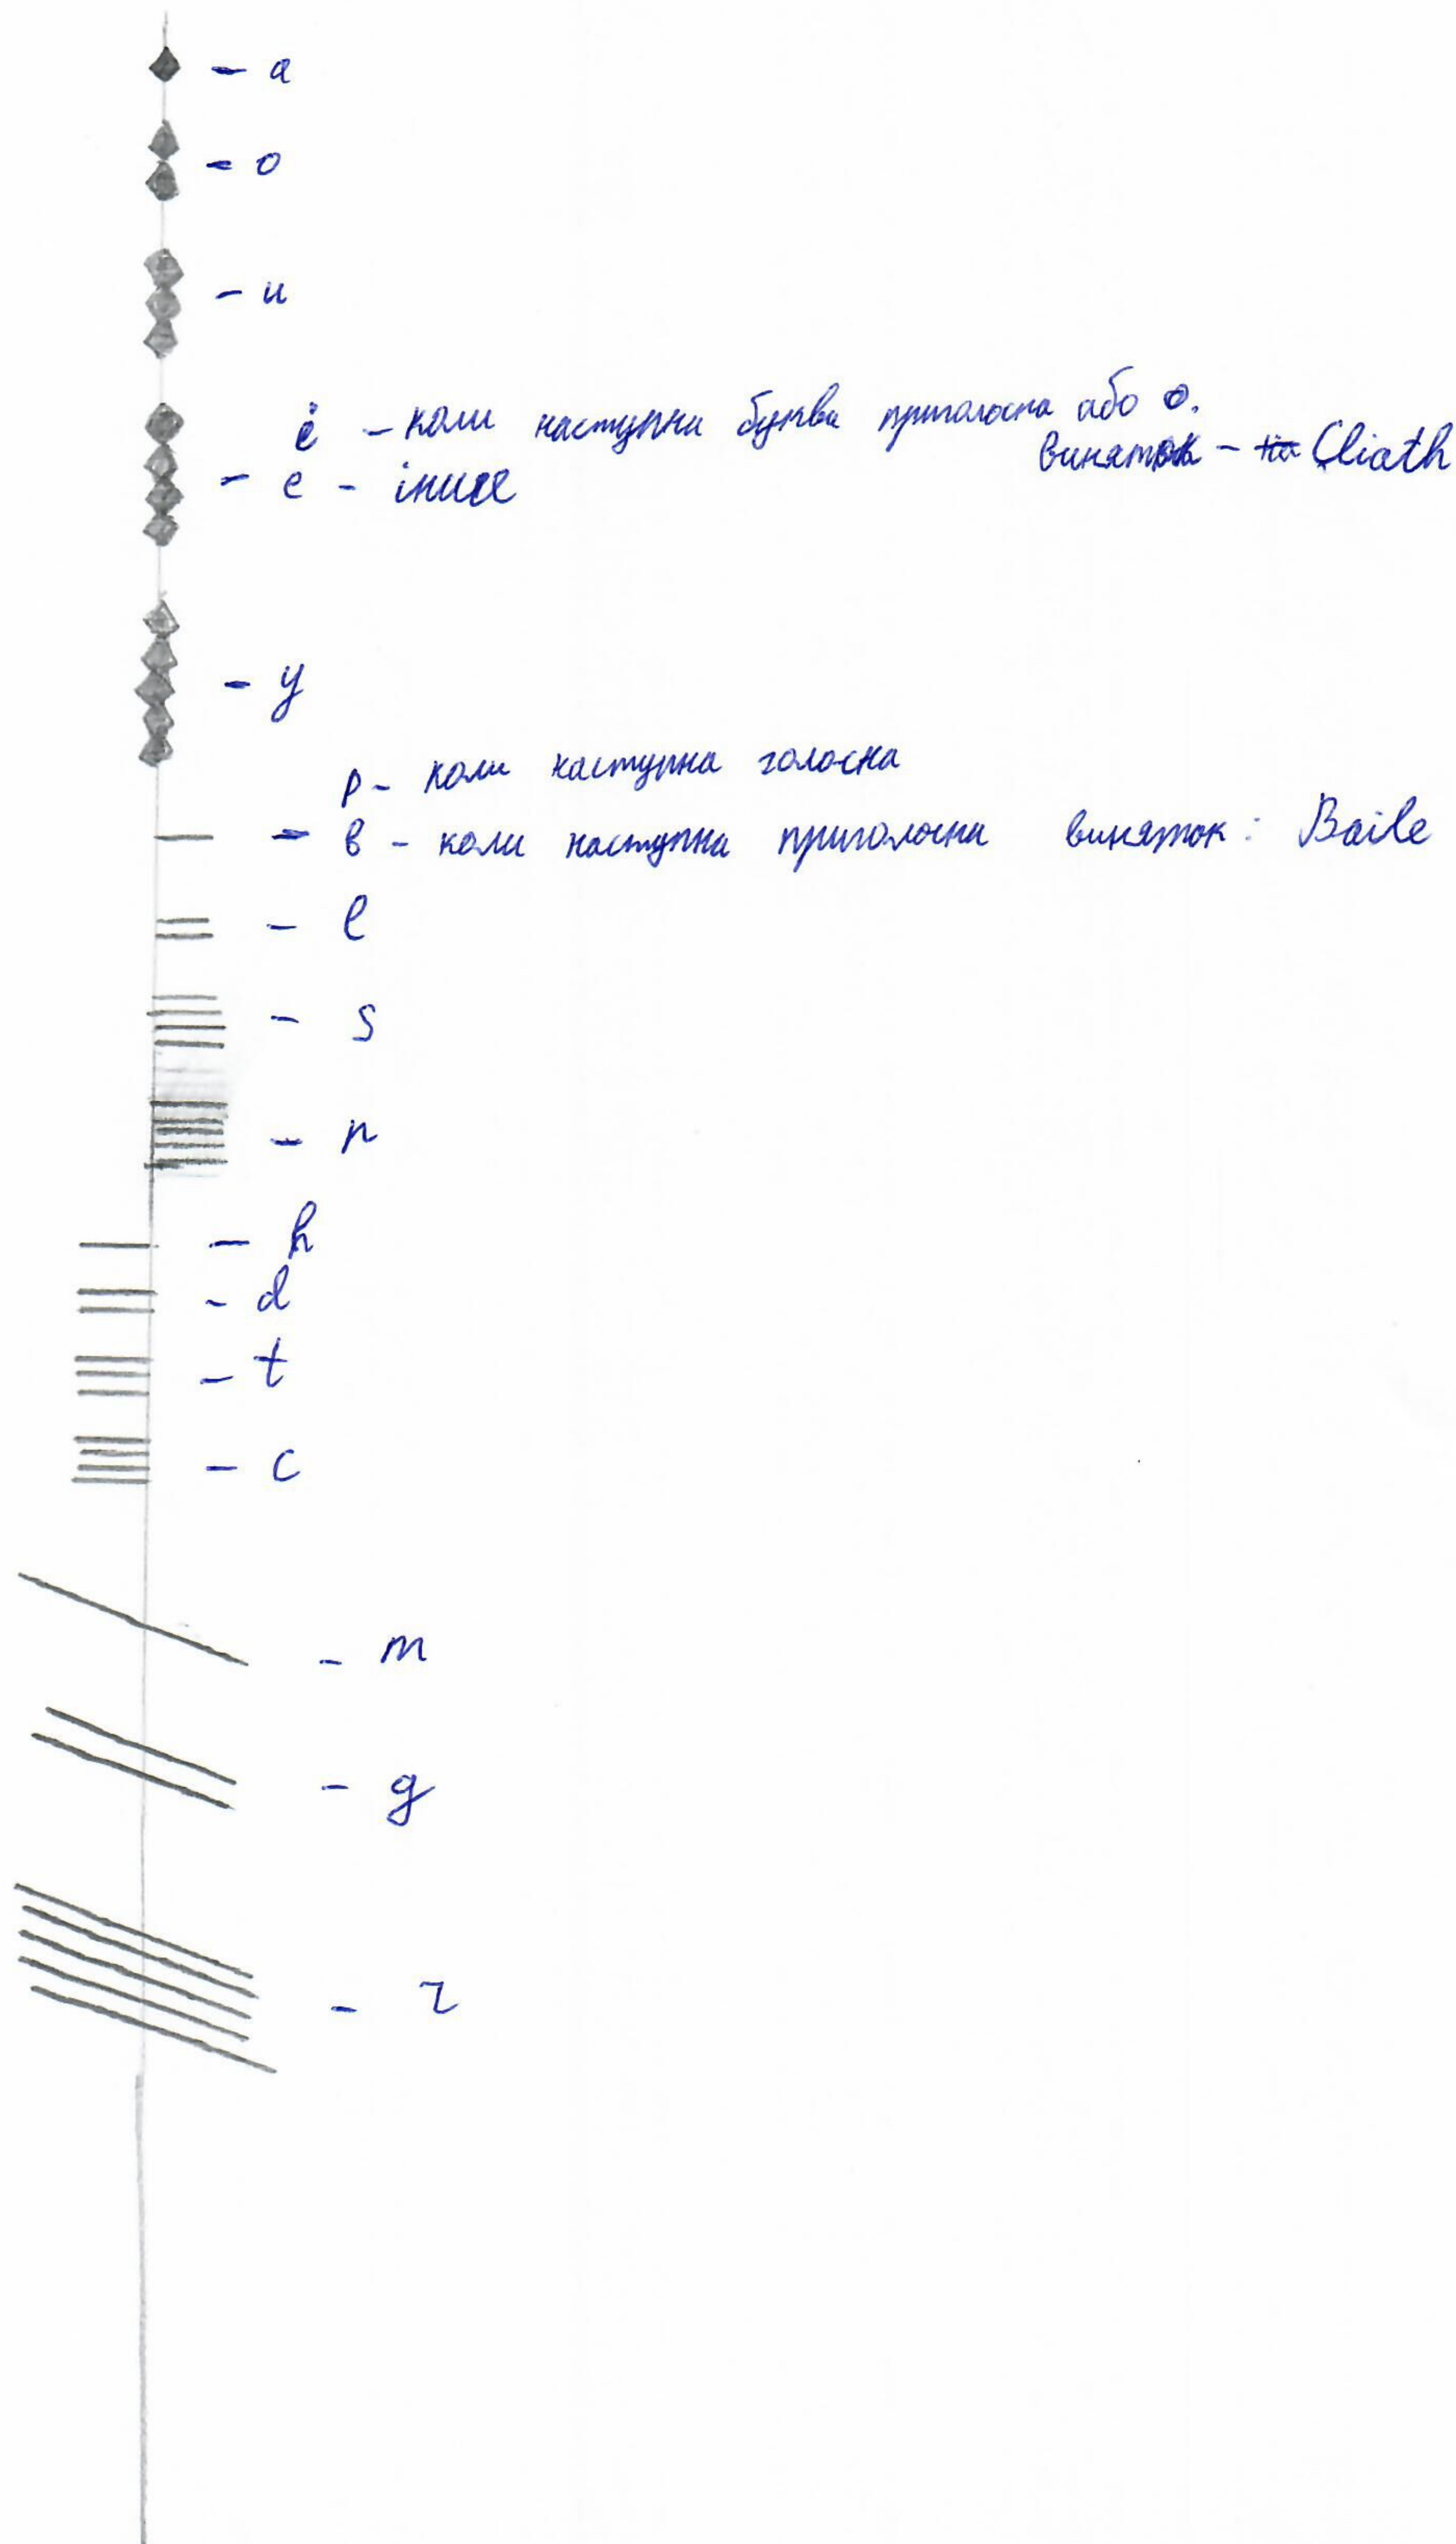 - a
- o
- u
ë - коли наступна буква приголосна або o.
виняток - Cliath
- e - інше
- y
p - коли наступна голосна
- b - коли наступна приголосна виняток: Baile
- l
- s
- n
- h
- d
- t
- c
- m
- g
- r